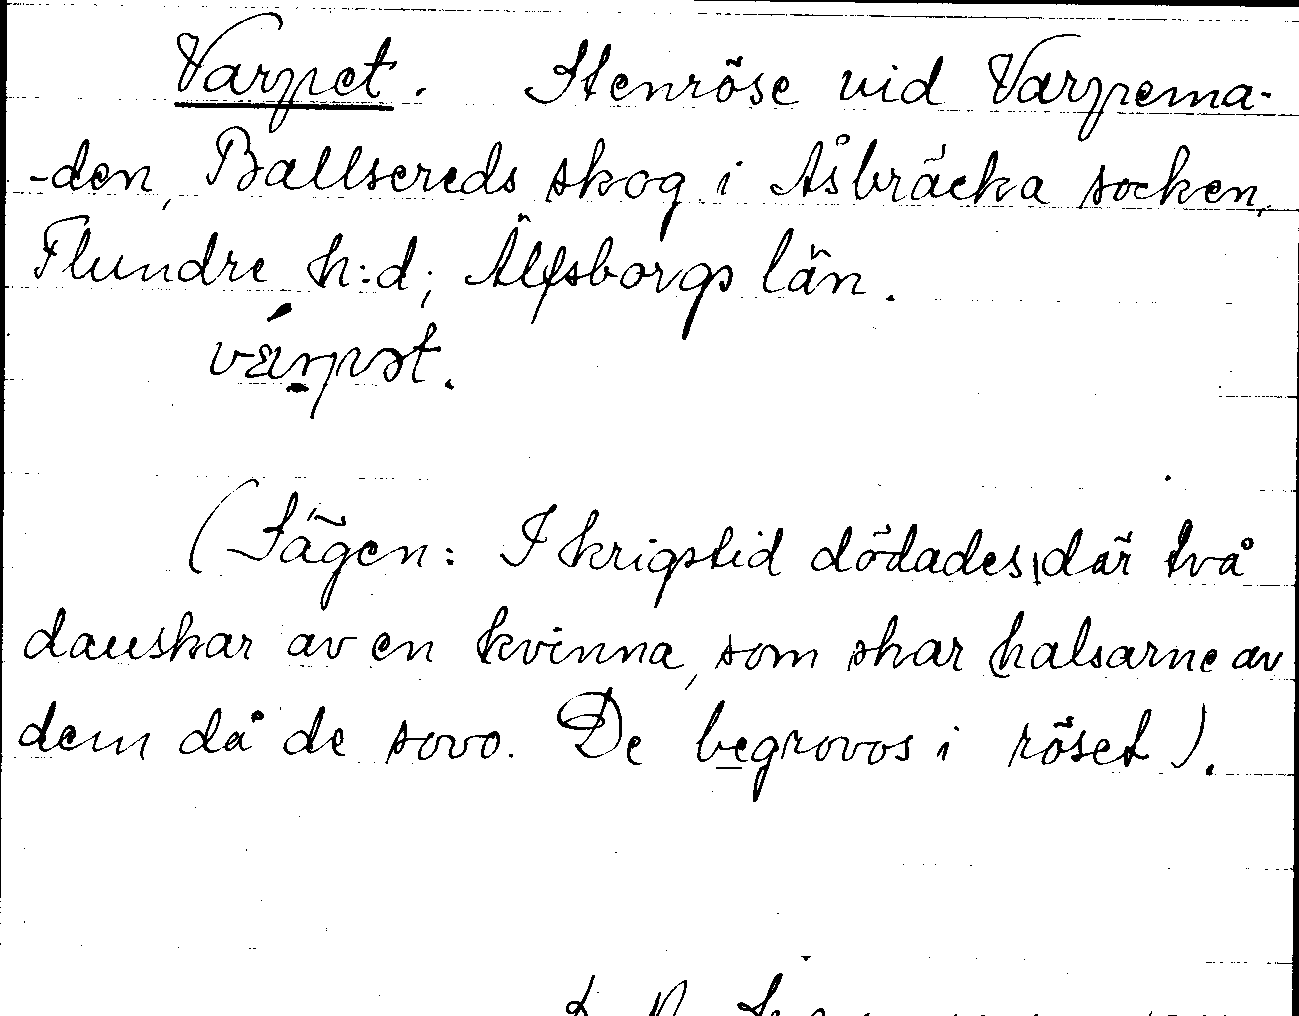 Varpet. Stenröse vid Varpema-
-den, Ballsereds skog i Åsbräcka socken,
Flundre h:d; Älfsborgs län.
várpət.
(Sägen: I krigstid dödades där två
danskar av en kvinna, som skar halsarne av
dem då de sovo. De begrovos i röset).